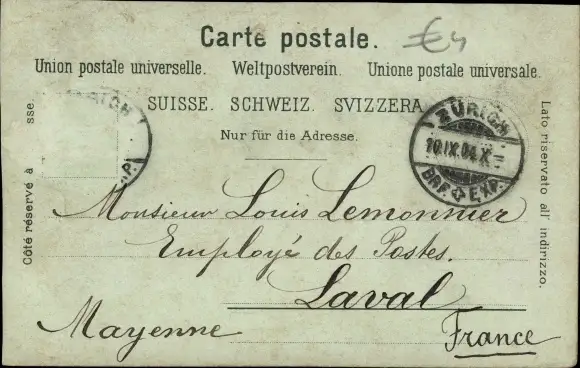 Carte postale. €4
Union postale universelle. Weltpostverein. Unione postale universale.
SUISSE. SCHWEIZ. SVIZZERA
Nur für die Adresse.
ZÜRICH
10.IX.04.X
BRF. EXP.
Côté réservé à
sse.
Lato riservato all' indirizzo.
Monsieur Louis Lemonnier
Employé des Postes.
Laval
Mayenne France